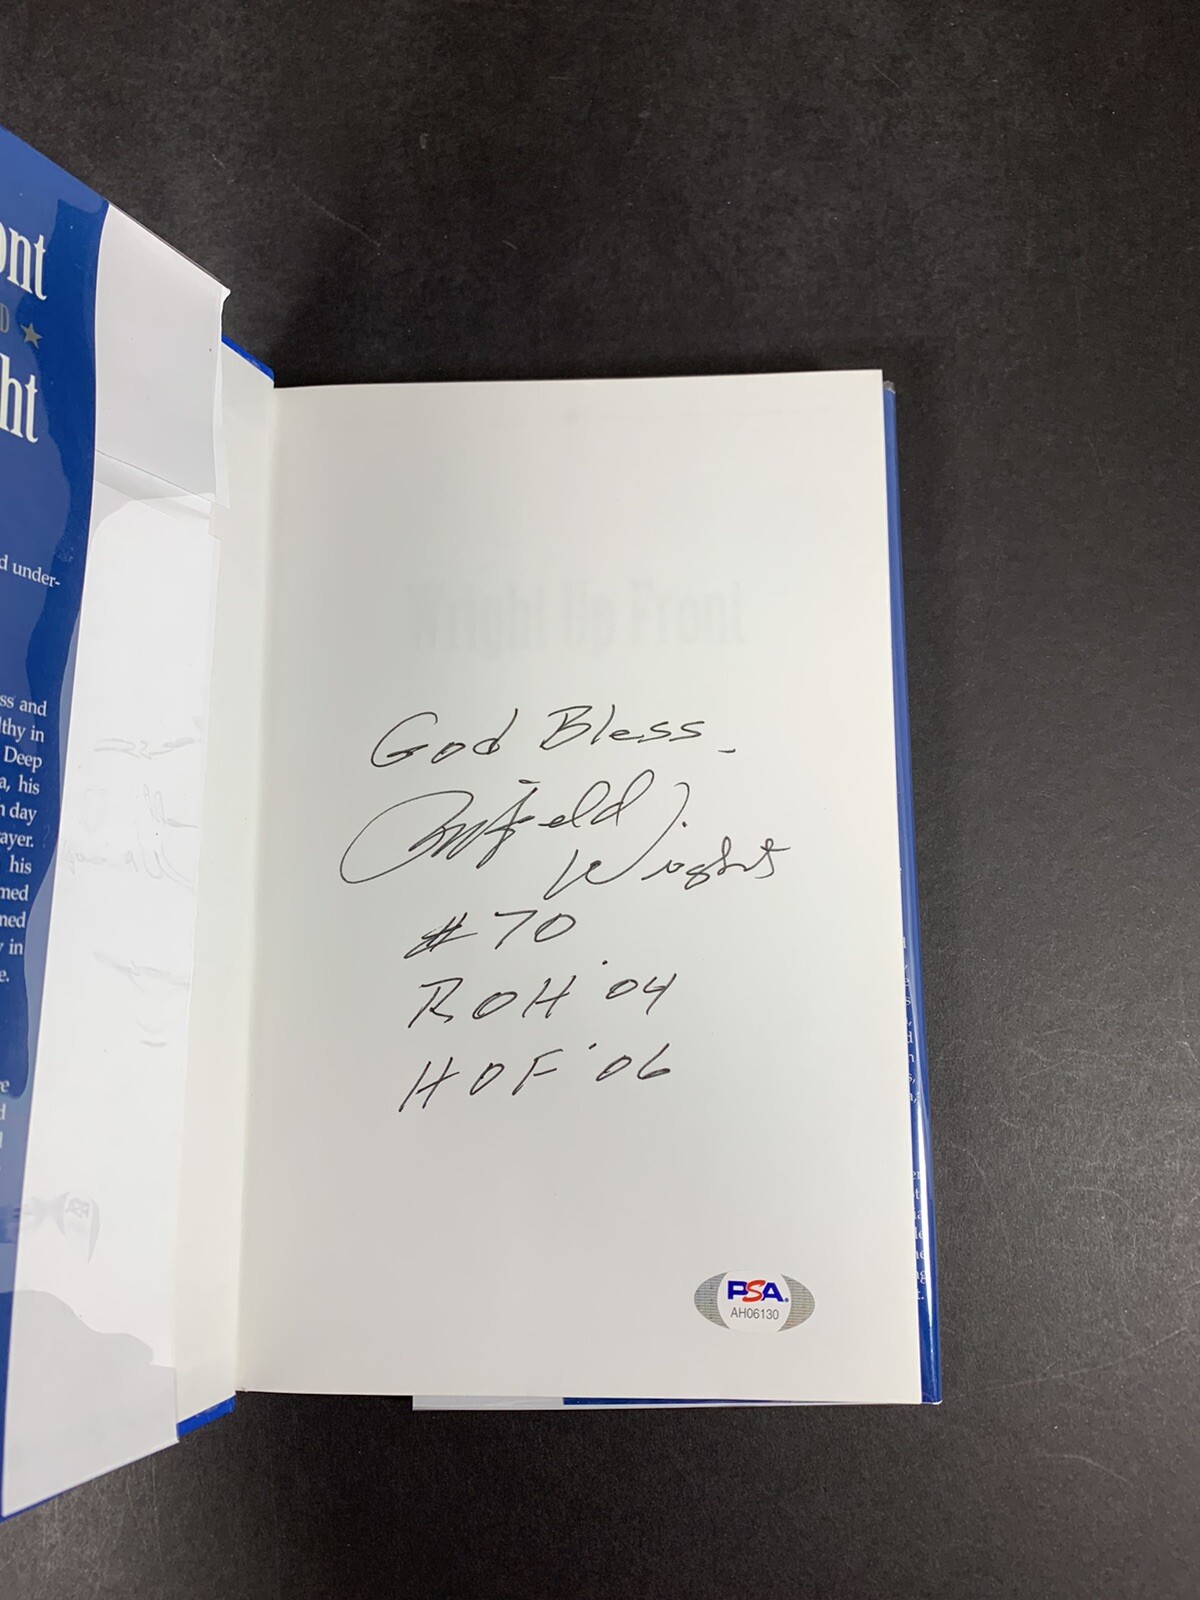 ont
D ★
ht
d under-
ss and
lthy in
Deep
a, his
n day
ayer.
his
med
ned
y in
e.
Wright Up Front
God Bless.
Rayfield
Wright
#70
ROH '04
HOF '06
PSA
AH06130